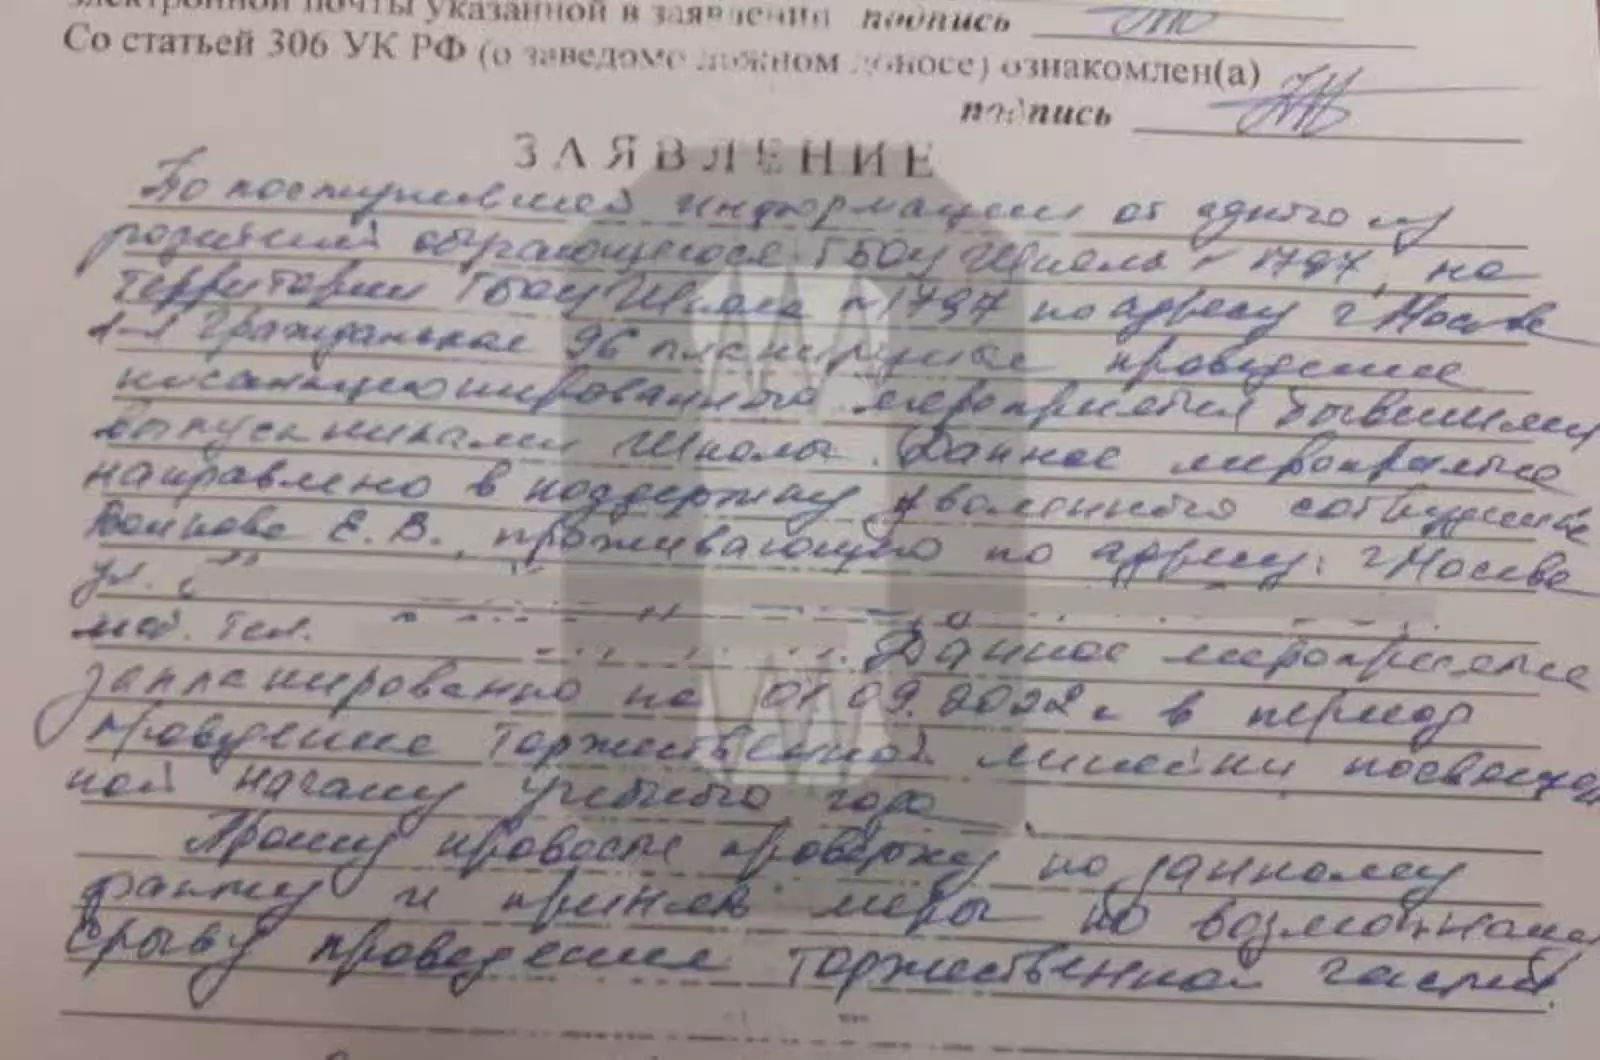 электронной почты указанной в заявлении подпись
Со статьей 306 УК РФ (о заведомо ложном доносе) ознакомлен(а)
подпись
ЗАЯВЛЕНИЕ
По поступившей информации от одного из
родителей обучающегося ГБОУ Школа № 1797, на
территории ГБОУ Школа №1797 по адресу г Москва
1-я Гражданская 96 планируется проведение
несанкционированного мероприятия бывшими
выпускниками Школы. Данное мероприятие
направлено в поддержку уволенного сотрудника
Е. В., проживающую по адресу: г Москва
ул.
моб. тел. Данное мероприятие
запланированно на 01.09.2022 г в период
проведение торжественной линейки посвящен
ной началу учебного года
Прошу провести проверку по данному
факту и принять меры по возможному
срыву проведения торжественной части.